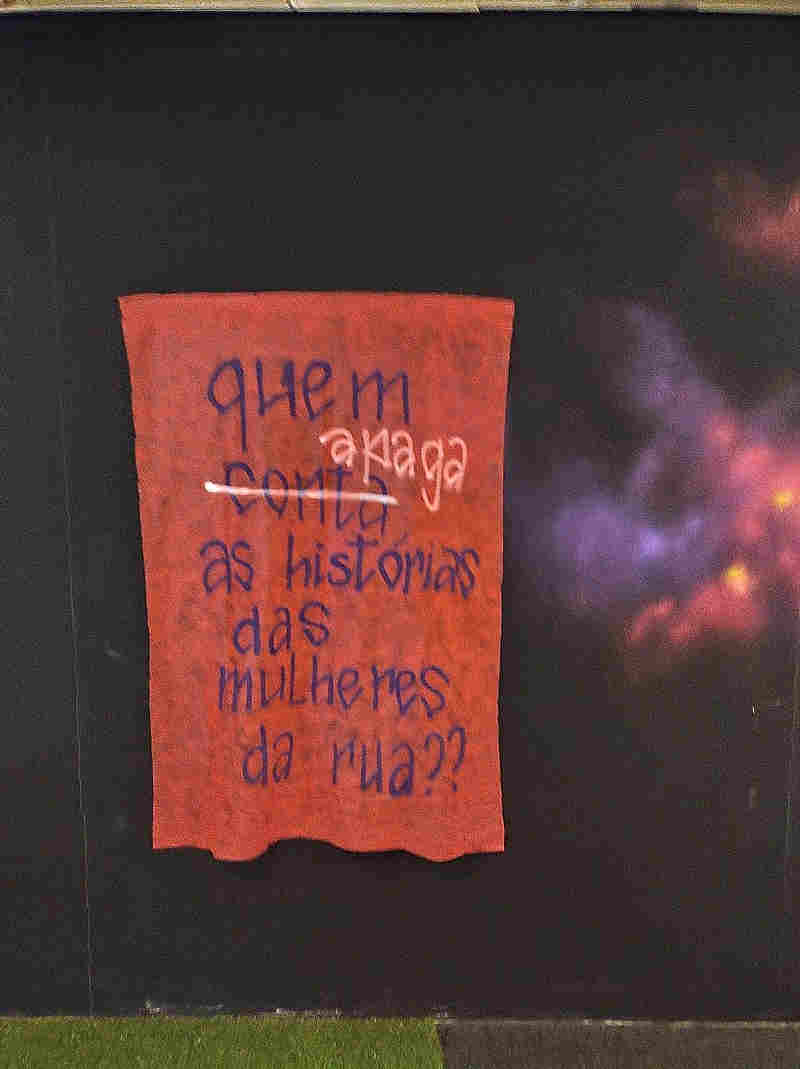 quem
apaga
conta
as histórias
das
mulheres
da rua??